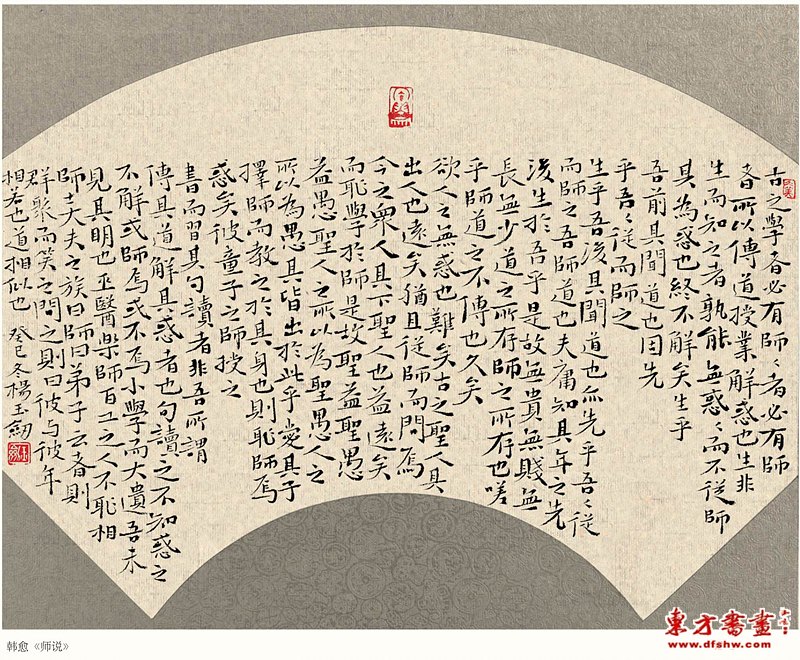 古之學者必有師〻者必有師
者所以傳道授業解惑也生非
生而知之者孰能無惑〻而不從師
其為惑也終不解矣生乎
吾前其聞道也因先
乎吾〻從而師之
生乎吾後其聞道也亦先乎吾〻從
而師之吾師道也夫庸知其年之先
後生於吾乎是故無貴無賤無
長無少道之所存師之所存也嗟
乎師道之不傳也久矣
欲人之無惑也難矣古之聖人其
出人也遠矣猶且從師而問焉
今之眾人其下聖人也益遠矣
而恥學於師是故聖益聖愚
益愚聖人之所以為聖愚人之
所以為愚其皆出於此乎愛其子
擇師而教之於其身也則恥師焉
惑矣彼童子之師授之
書而習其句讀者非吾所謂
傳其道解其惑者也句讀〻之不知惑之
不解或師焉或不焉小學而大遺吾未
見其明也巫醫樂師百工之人不恥相
師士大夫之族曰師曰弟子云者則
群聚而笑之問之則曰彼与彼年
相若也道相似也 癸巳冬楊玉劒
韩愈《师说》
東方書畫
www.dfshw.com